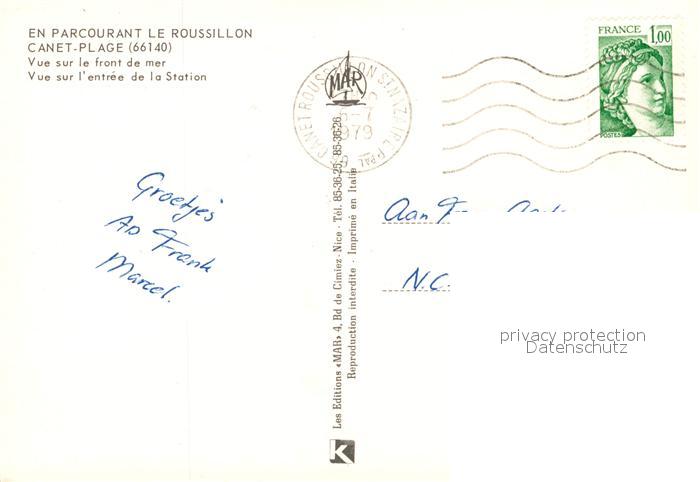 EN PARCOURANT LE ROUSSILLON
CANET-PLAGE (66140)
Vue sur le front de mer
Vue sur l'entrée de la Station
MAR
CANET ROUSSILLON ST NAZAIRE PPAL
-7
1979
FRANCE
1,00
POSTES
Groetjes
Ad Frank
Marcel.
Les Editions «MAR» 4, Bd de Cimiez - Nice - Tél. 85-36-25. 85-36-26.
Reproduction interdite - Imprimé en Italie
K
Aan
N.C.
privacy protection
Datenschutz